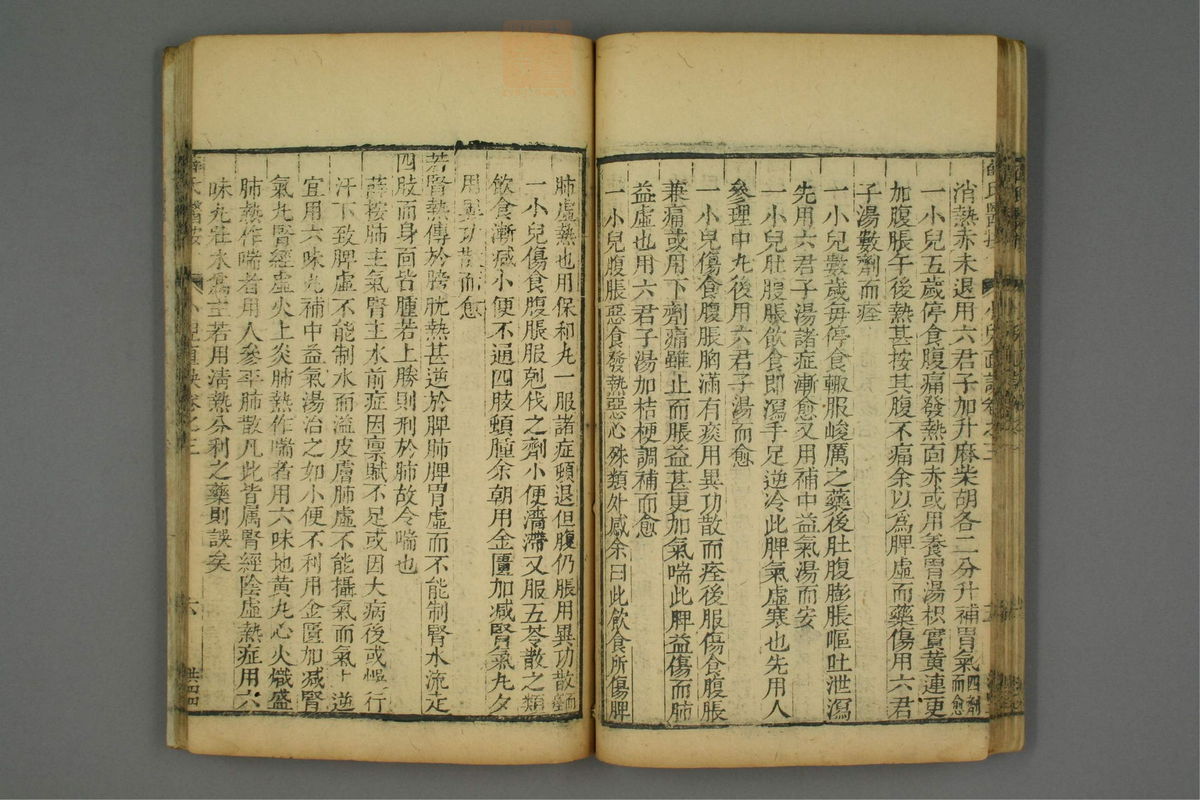 消熱亦未退用六君子加升麻柴胡各二分升補胃氣四劑而愈
一小兒五歲停食腹痛發熱面赤或用養胃湯枳實黃連更
加腹脹午後熱甚按其腹不痛余以為脾虛而藥傷用六君
子湯數劑而痊
一小兒數歲每停食輙服峻厲之藥後肚腹膨脹嘔吐泄瀉
先用六君子湯諸症漸愈又用補中益氣湯而安
一小兒肚腹脹飲食即瀉手足逆冷此脾氣虛寒也先用人
參理中丸後用六君子湯而愈
一小兒傷食腹脹胸滿有痰用異功散而痊後服傷食腹脹
兼痛或用下劑痛雖止而脹益甚更加氣喘此脾益傷而肺
益虛也用六君子湯加桔梗調補而愈
一小兒腹脹惡食發熱惡心殊類外感余曰此飲食所傷脾
肺虛熱也用保和丸一服諸症頓退但腹仍脹用異功散而
一小兒傷食腹脹服剋伐之劑小便濇滯又服五苓散之類
飲食漸減小便不通四肢頓腫余朝用金匱加減腎氣丸夕
用異功散而愈
若腎熱傳於膀胱熱甚逆於脾肺脾胃虛而不能制腎水流走
四肢而身面皆腫若上勝則刑於肺故令喘也
薛按肺主氣腎主水前症因禀賦不足或因大病後或誤行
汗下致脾虛不能制水而溢皮膚肺虛不能攝氣而氣上逆
宜用六味丸補中益氣湯治之如小便不利用金匱加減腎
氣丸腎經虛火上炎肺熱作喘者用六味地黃丸心火熾盛
肺熱作喘者用人參平肺散凡此皆屬腎經陰虛熱症用六
味丸壯水為主若用清熱分利之藥則誤矣
六